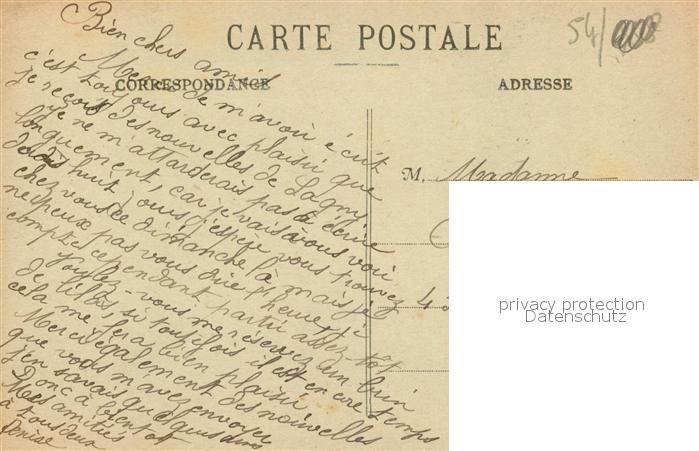 CARTE POSTALE
54/
CORRESPONDANCE
ADRESSE
Bien chers amis
Merci de m'avoir écrit
c'est toujours avec plaisir que
je reçois des nouvelles de Lagny
je ne m'attarderais pas à écrire
longuement, car je vais vous voir
dans huit jours j'espère vous trouvez
chez vous ce dimanche là mais je
ne peux pas vous dire l'heure, je
compte cependant partir assez tôt
Voulez-vous me réservez un brin
de lilas si toutefois il est encore temps
cela me fera bien plaisir
Merci également des nouvelles
que vous m'avez envoyer
j'en savais quelques unes
Donc à bientôt
Mes amitiés
à tous deux
Denise
M. Madame
privacy protection
Datenschutz